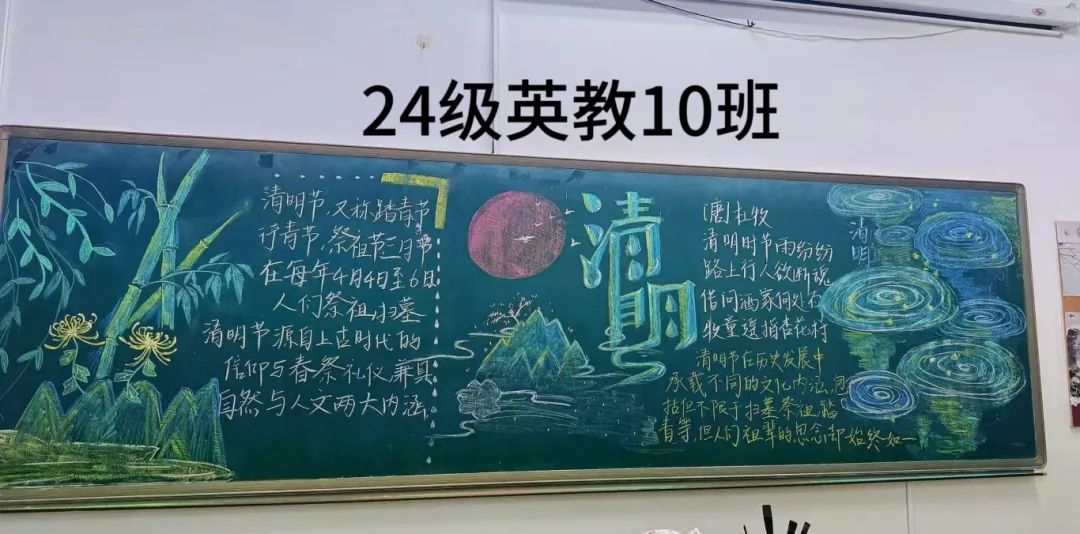 24级英教10班
清明节，又称踏青节
行青节，祭祖节三月节
在每年4月4日至6日
人们祭祖，扫墓
清明节源自上古时代的
信仰与春祭礼仪，兼具
自然与人文两大内涵，
清明
[唐]杜牧
清明时节雨纷纷
路上行人欲断魂
借问酒家何处有
牧童遥指杏花村
清明节在历史发展中
承载不同的文化内涵，包
括但不限于扫墓祭祖踏
青等，但人们祖辈的思念却始终如一
清明